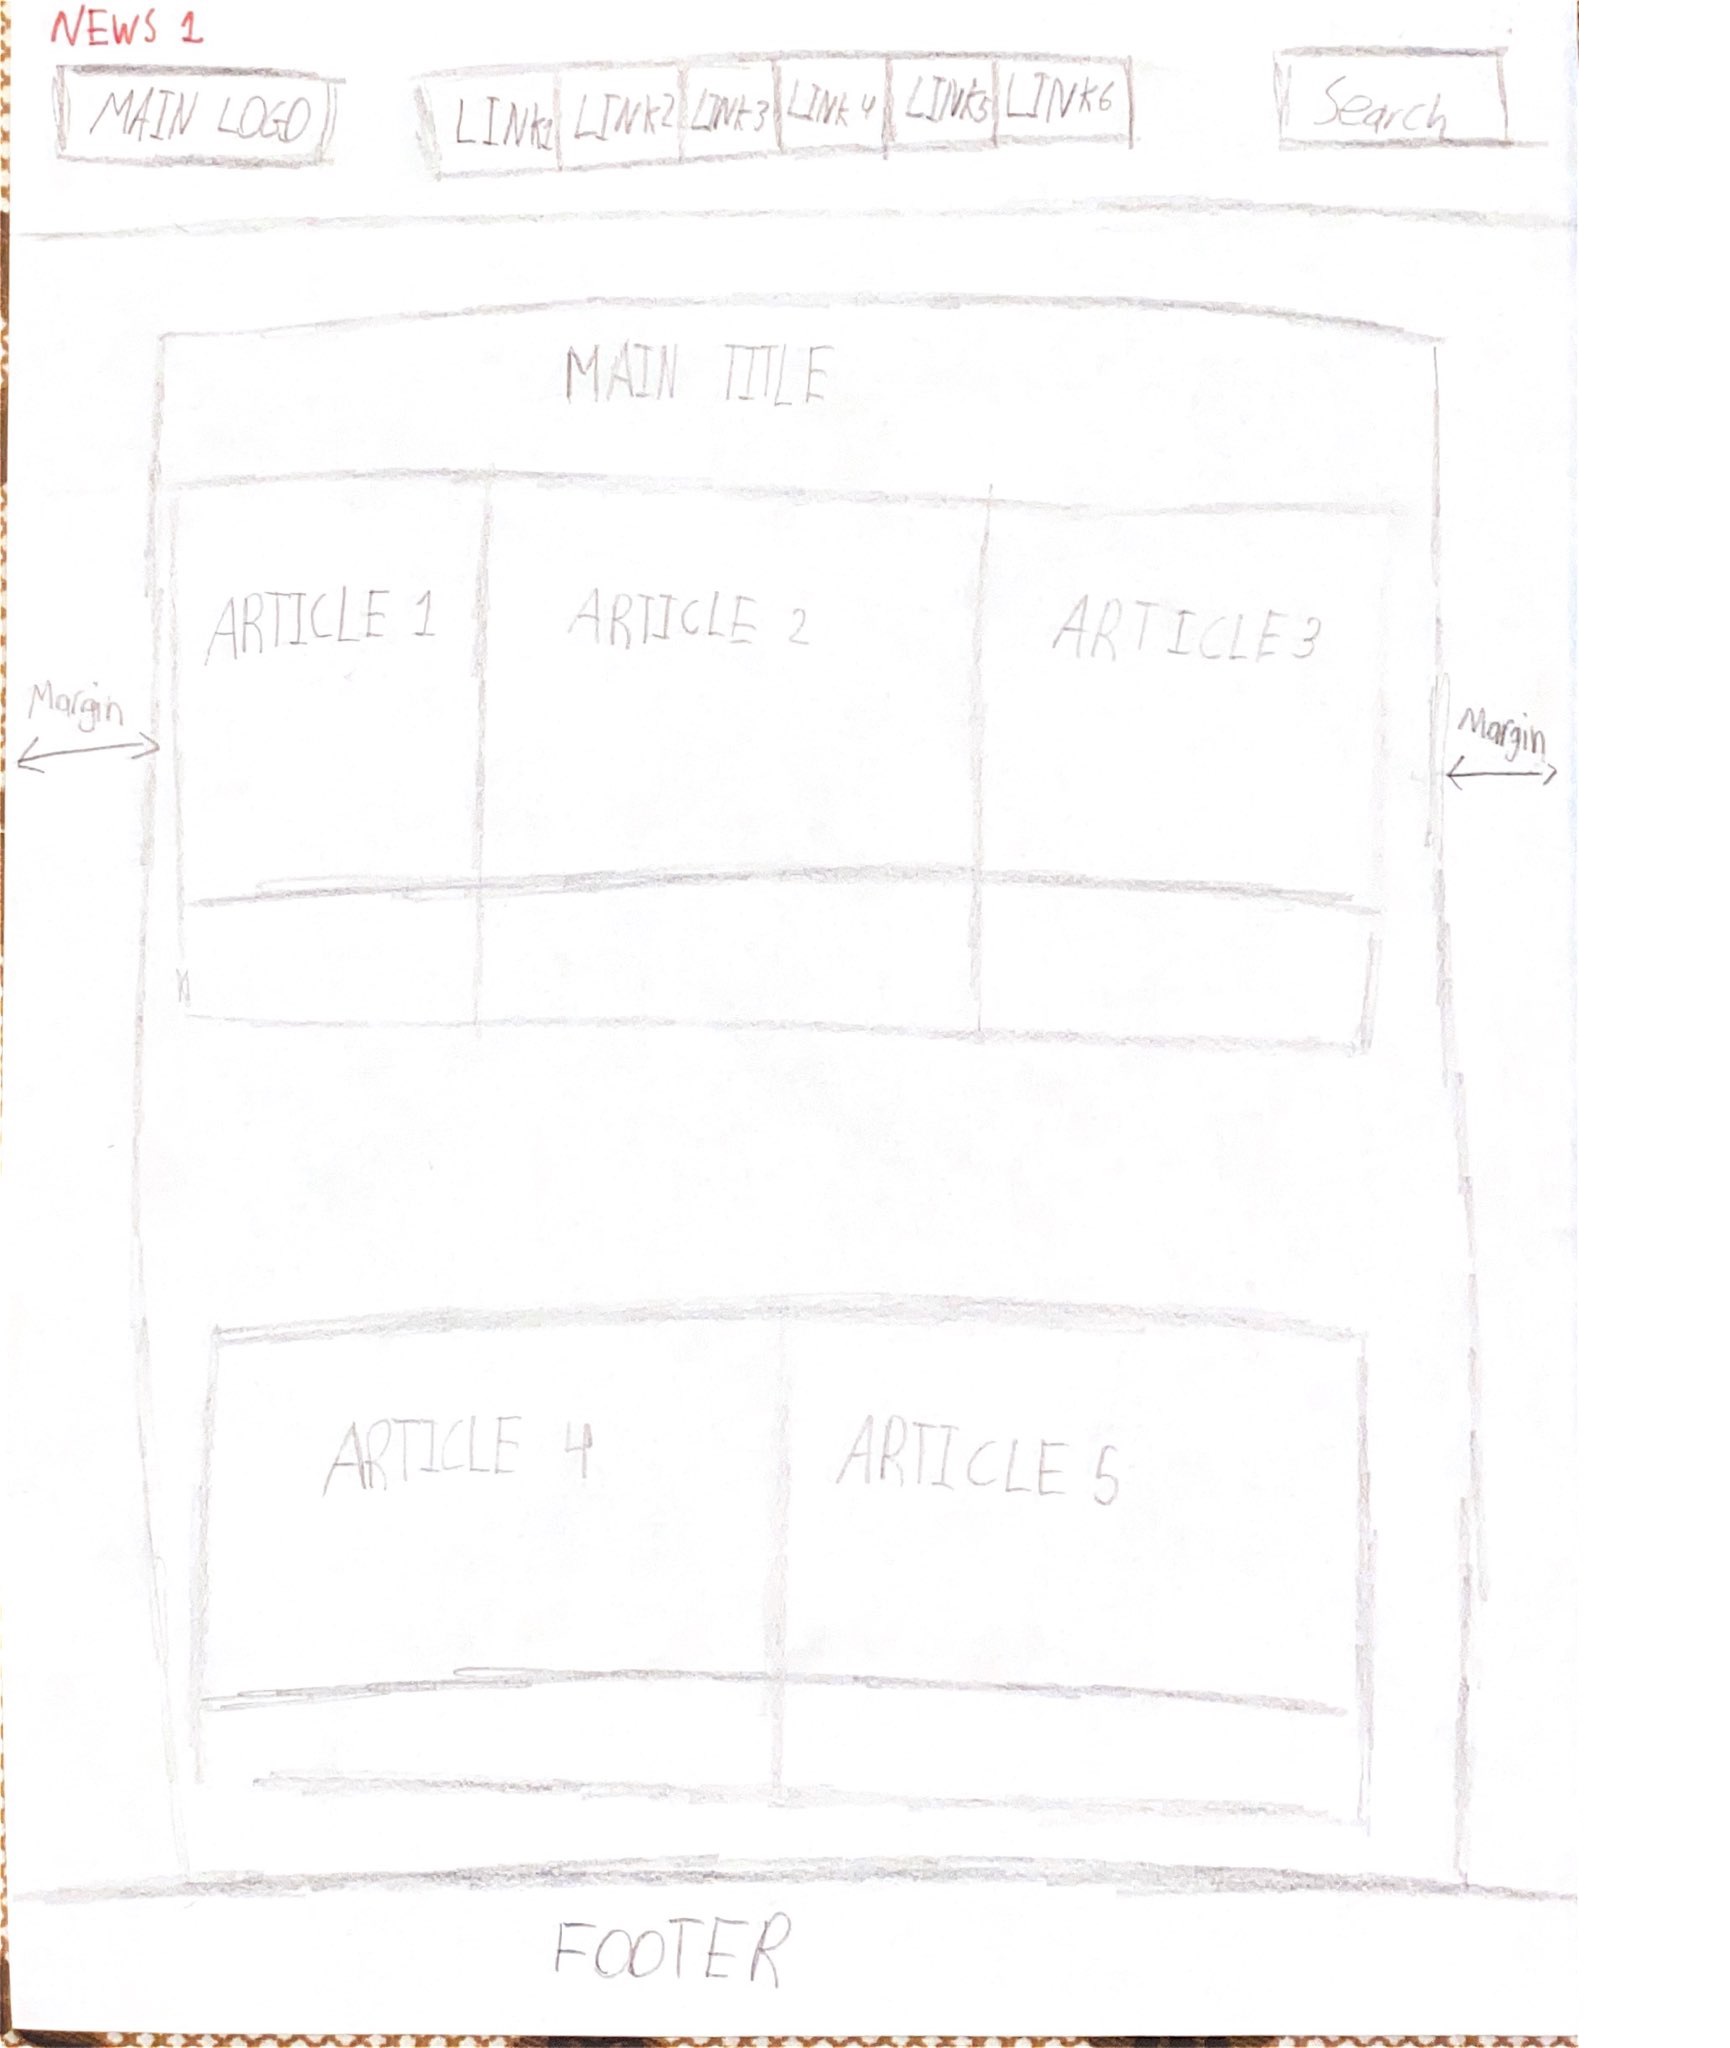 NEWS 1
MAIN LOGO LINK1 LINK2 LINK3 LINK4 LINK5 LINK6 Search
MAIN TITLE
ARTICLE 1 ARTICLE 2 ARTICLE 3
Margin Margin
ARTICLE 4 ARTICLE 5
FOOTER